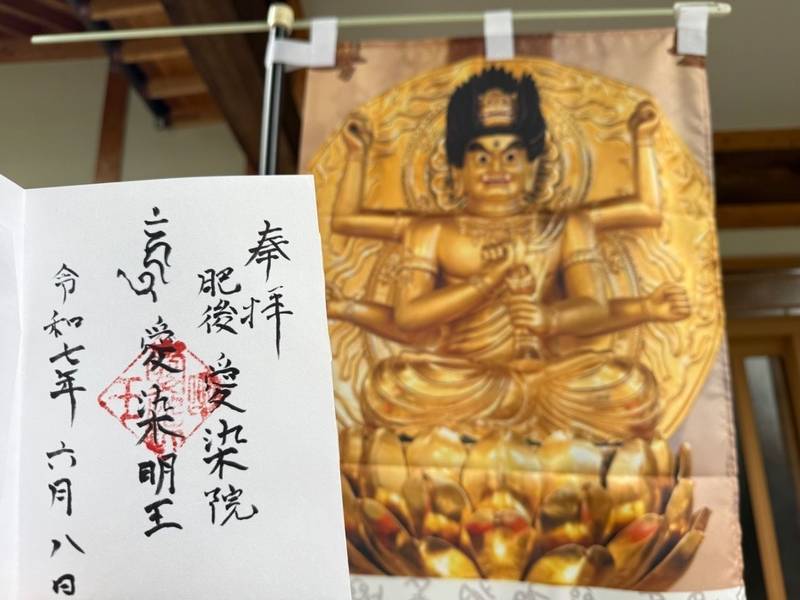 奉拝
肥後 愛染院
愛染明王
令和七年 六月 八日